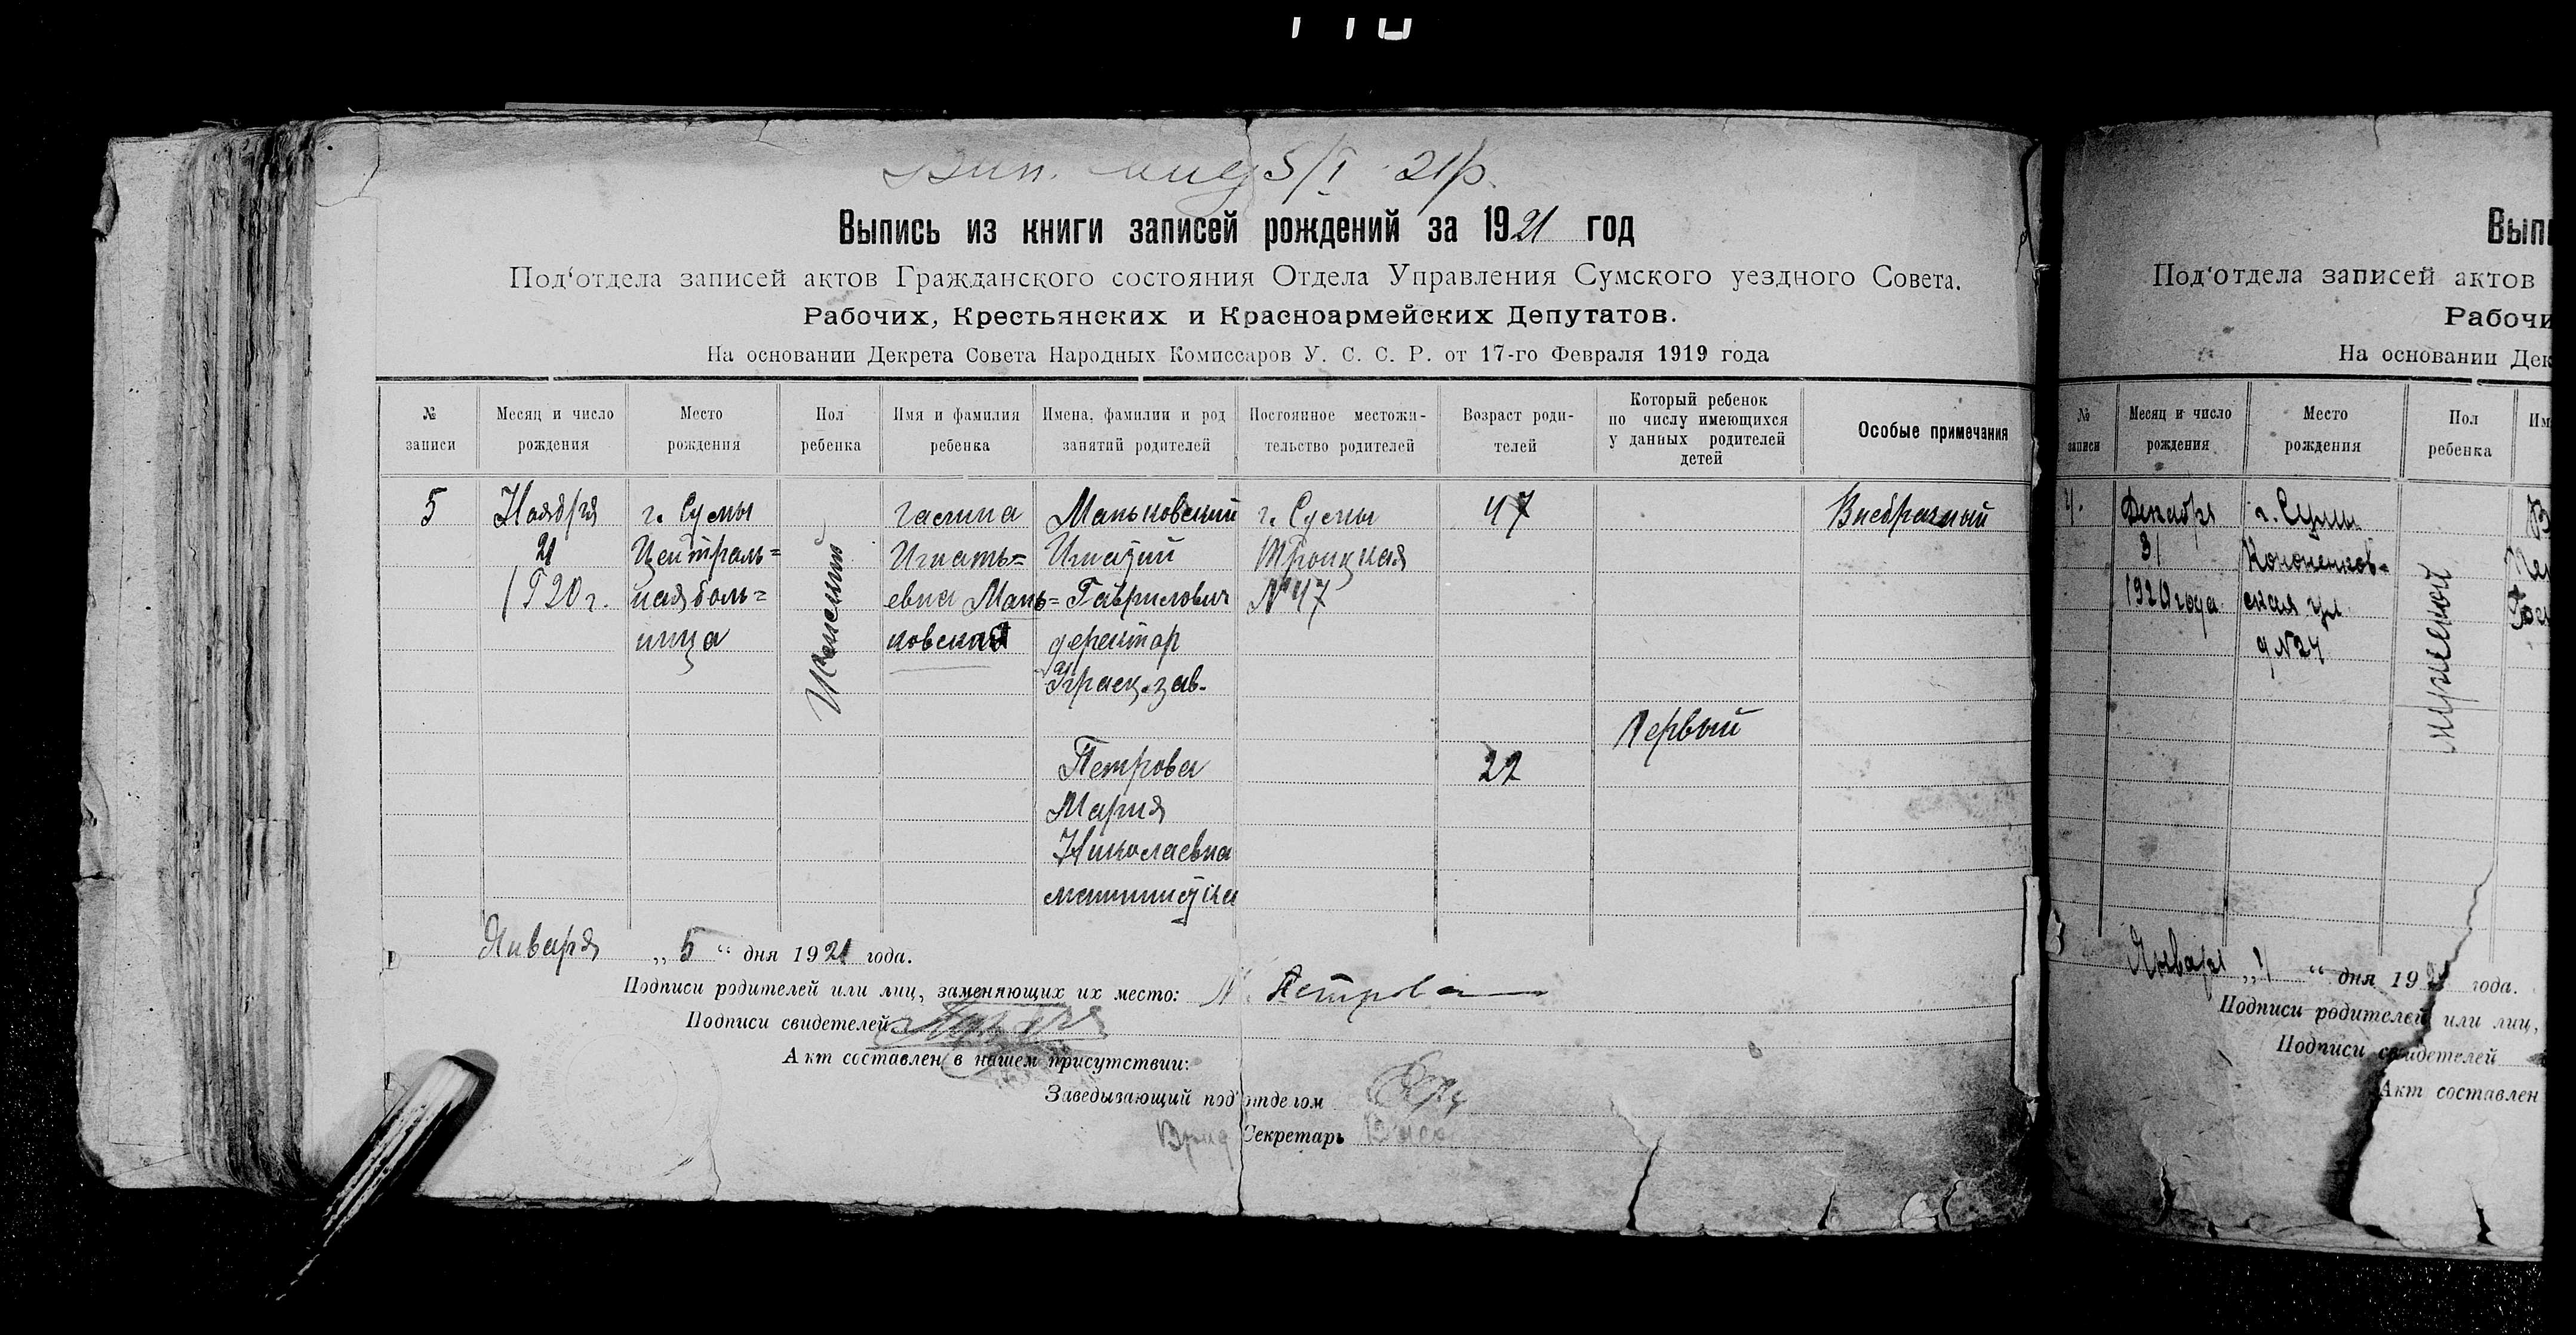 5/I 21р.
Выпись из книги записей рождений за 1921 год
Под'отдела записей актов Гражданского состояния Отдела Управления Сумского уездного Совета.
Рабочих, Крестьянских и Красноармейских Депутатов.
На основании Декрета Совета Народных Комиссаров У. С. С. Р. от 17-го Февраля 1919 года
№ записи
Месяц и число рождения
Место рождения
Пол ребенка
Имя и фамилия ребенка
Имена, фамилии и род занятий родителей
Постоянное местожительство родителей
Возраст родителей
Который ребенок по числу имеющихся у данных родителей детей
Особые примечания
5
Ноября
21
1920 г.
г. Сумы
Централь=
ная боль=
ница
Женский
Галина
Игнать=
евна Мань=
ковская
Маньковский
Игнатий
Гаврилович
директор
зав.
Петрова
Мария
Николаевна
г. Сумы
Троицкая
№ 47
47
Первый
Внебрачный
Января „5“ дня 1921 года.
Подписи родителей или лиц, заменяющих их место: М. Петрова
Подписи свидетелей
Акт составлен в нашем присутствии:
Заведывающий под'отделом
Врид Секретарь
Вып
Под'отдела записей актов
Рабочи
На основании Дек
№ записи
Месяц и число рождения
Место рождения
Пол ребенка
Им
4.
Декабря
31
1920 года
г. Сумы
Кононенков=
ская ул
д № 24
мужской
Января „4“ дня 1921 года.
Подписи родителей или лиц,
Подписи свидетелей
Акт составлен